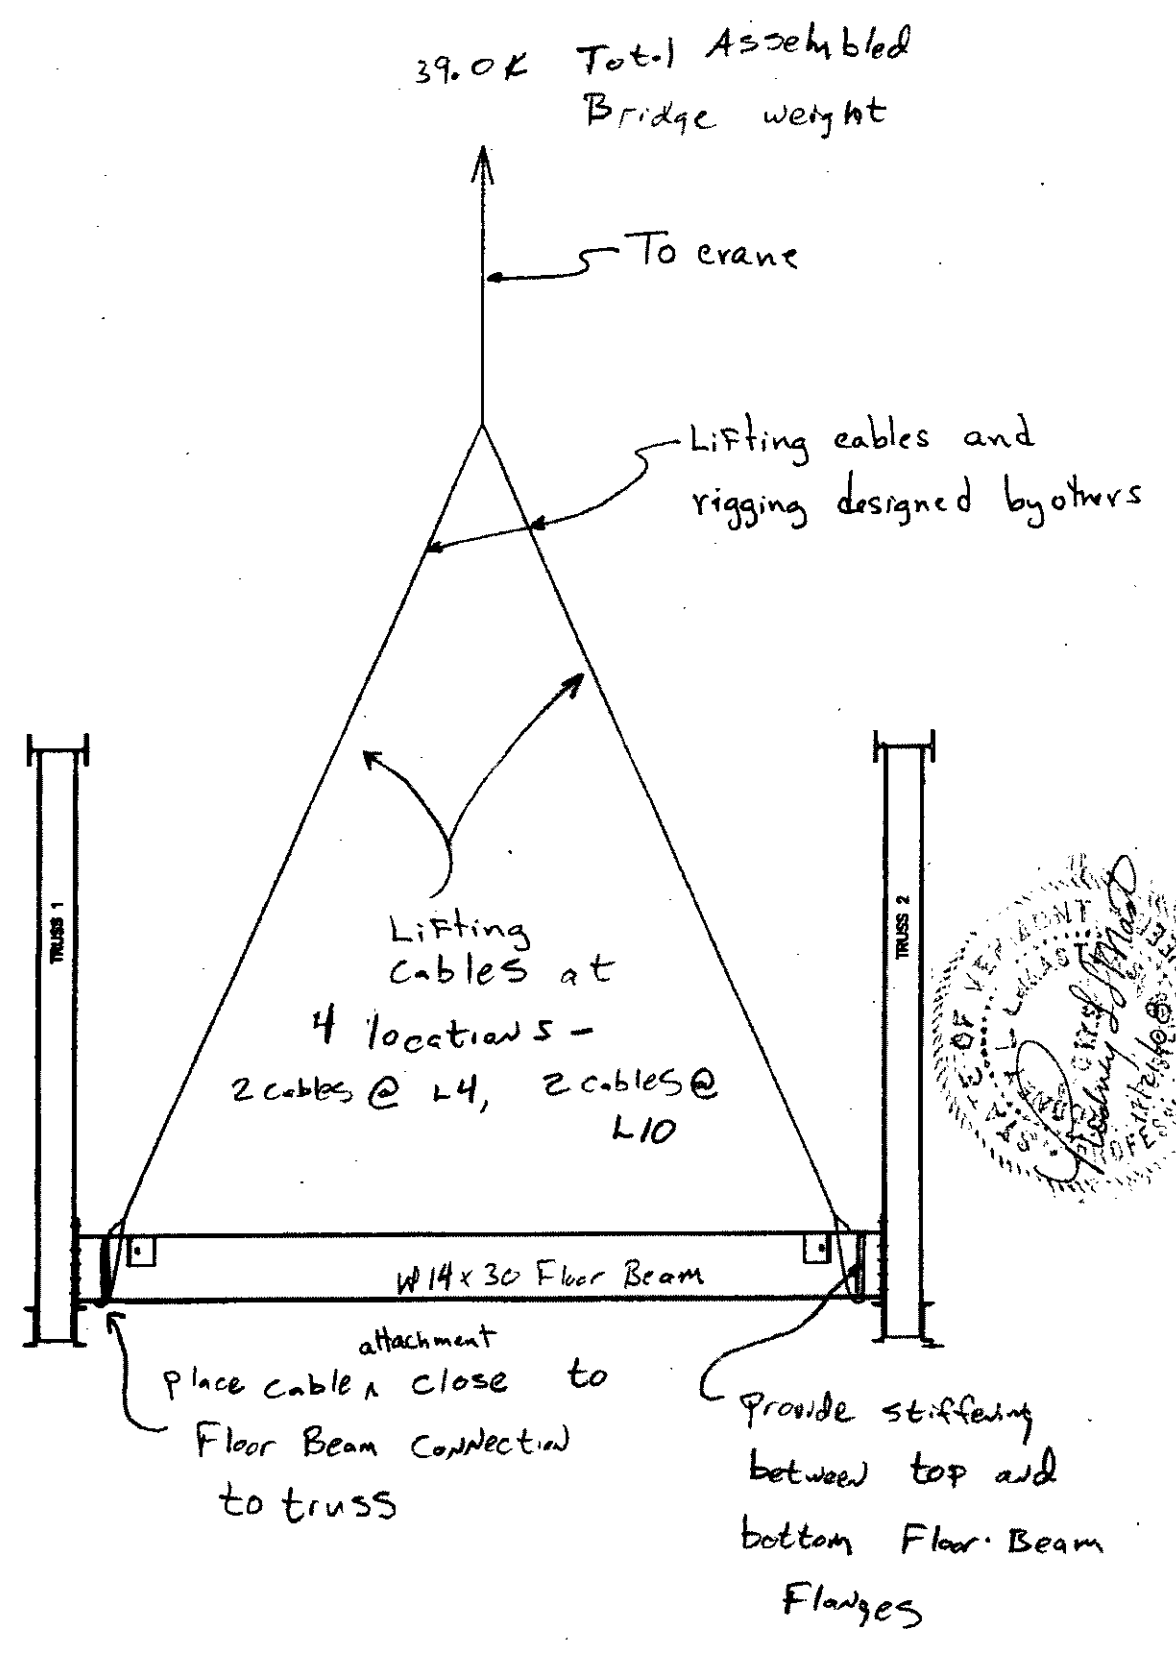 39.0K Total Assembled
Bridge weight
To crane
Lifting cables and
rigging designed by others
TRUSS 1
TRUSS 2
Lifting
cables at
4 locations -
2 cables @ L4, 2 cables @
L10
W14x30 Floor Beam
attachment
place cable ^ close to
Floor Beam Connection
to truss
provide stiffening
between top and
bottom Floor Beam
Flanges
OF VERMONT